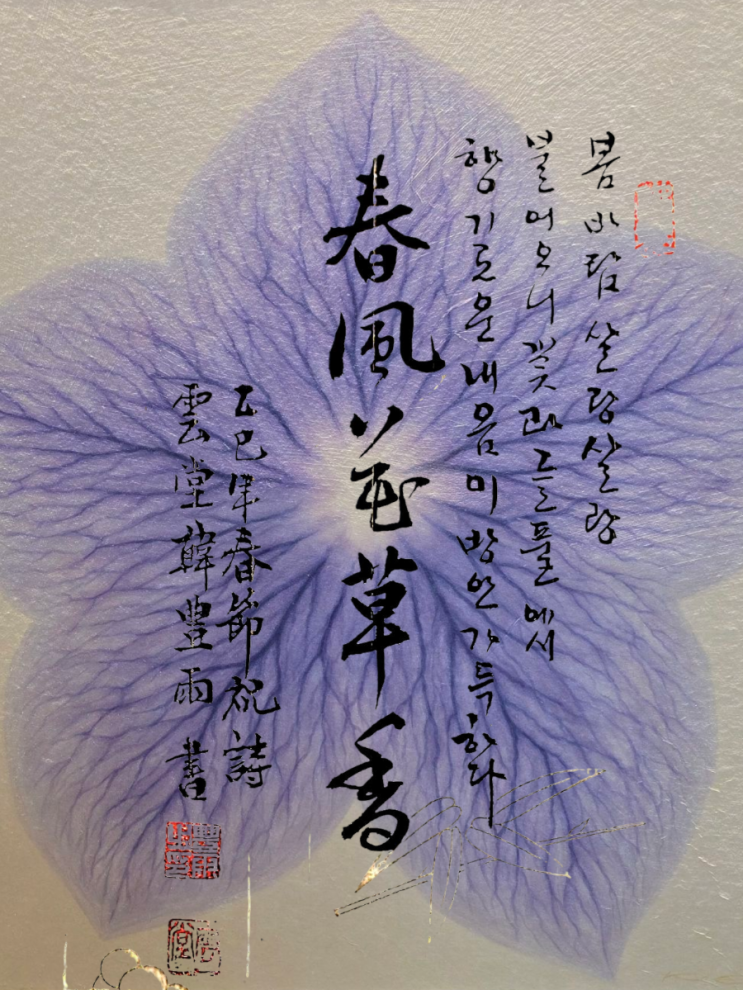 봄바람 살랑살랑
불어오니 꽃과 들풀에서
향기로운 내음이 방안 가득하다
春風花草香
乙巳年春節祝詩
雲堂韓豊雨 書
雲堂